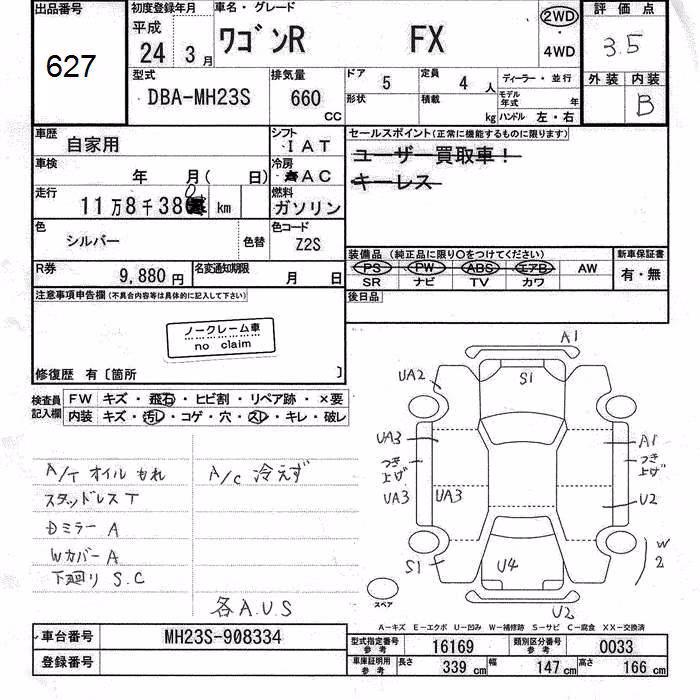 出品番号
627
初度登録年月
平成
24年 3月
車名・グレード
ワゴンR FX
2WD
・
4WD
評価点
3.5
外装 内装
B
型式
DBA-MH23S
排気量
660
CC
ドア 5
形状
定員 4人
積載 kg
ディーラー・並行
モデル年式 年
ハンドル 左・右
車歴
自家用
シフト
IAT
セールスポイント(正常に機能するものに限ります)
ユーザー買取車!
キーレス
車検
年 月( 日)
冷房
AC
走行
11万8千380 km
燃料
ガソリン
色
シルバー
色替
色コード
Z2S
装備品(純正品に限り○をつけてください)
PS PW ABS エアB AW
SR ナビ TV カワ
新車保証書
有・無
R券
9,880円
名変通知期限
月 日
後日品
注意事項申告欄(不具合内容等は具体的に記入して下さい)
ノークレーム車
no claim
修復歴 有〔箇所 〕
検査員記入欄
FW キズ・飛石・ヒビ割・リペア跡・×要
内装 キズ・汚レ・コゲ・穴・スレ・キレ・破レ
A/T オイルもれ
A/C 冷えず
スタッドレスT
Dミラー A
Wカバー A
下廻り S.C
各A.U.S
A1
UA2
S1
UA3
つき上げ
UA3
UA3
A1
つき上げ
U2
S1
U4
W2
U2
スペア
A－キズ E－エクボ U－凹み W－補修跡 S－サビ C－腐食 XX－交換済
車台番号
MH23S-908334
登録番号
型式指定番号
参考
16169
類別区分番号
参考
0033
車庫証明用
参考
長さ 339cm
幅 147cm
高さ 166cm